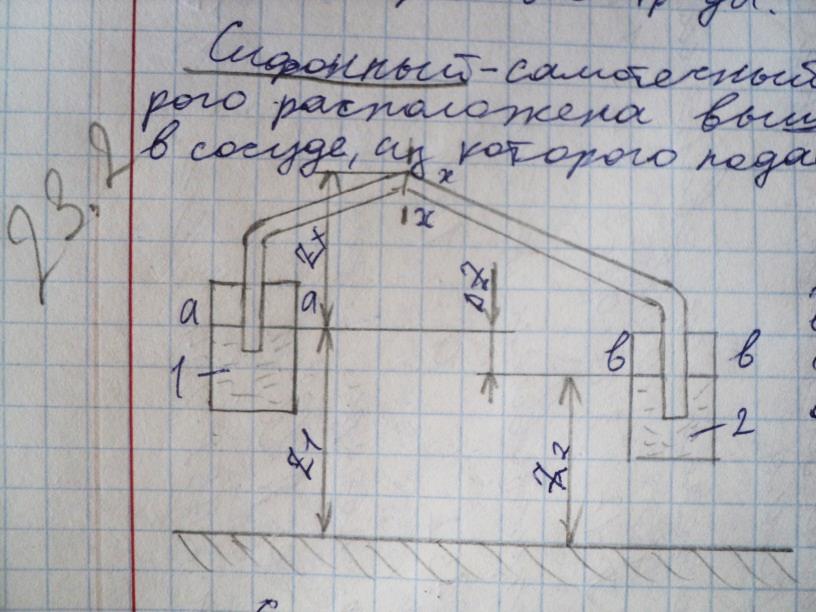 Сифонный - самотечный
рого расположена выш
в сосуде, из которого пода
23.2
x
x
Zx
ΔZ
a a
в в
1
2
Z1
Z2